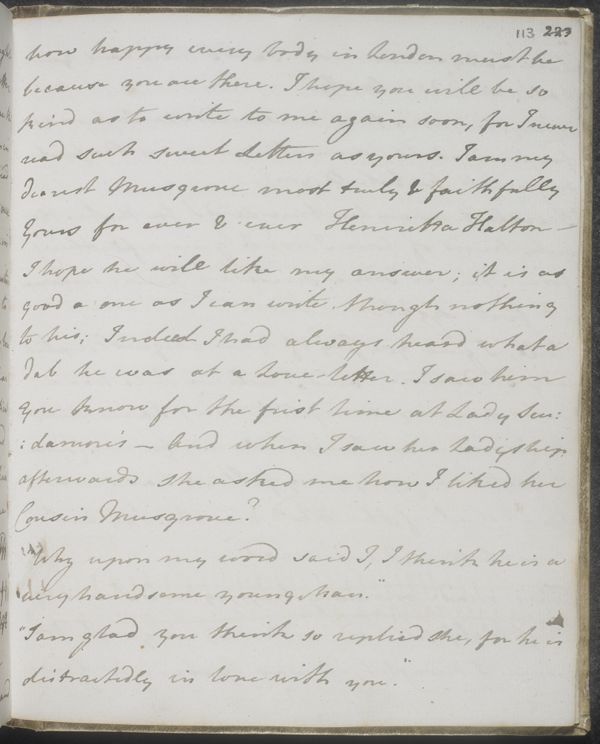 113 223
how happy every body in London must be
because you are there. I hope you will be so
kind as to write to me again soon, for I never
read such sweet Letters as yours. I am my
dearest Musgrove most truly & faithfully
Yours for ever & ever Henrietta Halton —
I hope he will like my answer; it is as
good a one as I can write though nothing
to his; Indeed I had always heard what a
dab he was at a Love-letter. I saw him
you know for the frist time at Lady Scu:
:damore's — And when I saw her Ladyship
afterwards she asked me how I liked her
Cousin Musgrove?
"Why upon my word said I, I think he is a
very handsome young Man."
"I am glad you think so replied she, for he is
distractedly in love with you."